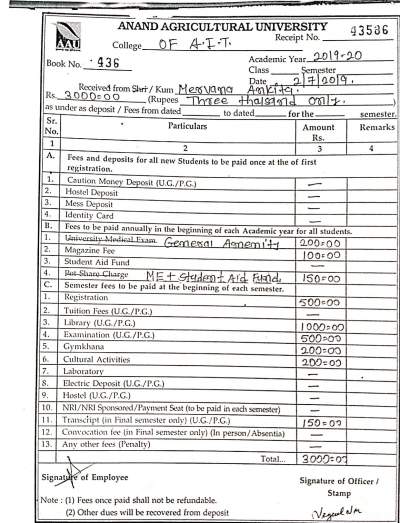 AAU
ANAND AGRICULTURAL UNIVERSITY
College OF A.I.T. Receipt No. 43586
Academic Year 2019-20
Book No. 436
Class Semester
Date 2/7/2019.
Received from Shri / Kum Mervana Ankita.
Rs. 3000=00 (Rupees Three thalsand only. )
as under as deposit / Fees from dated to dated for the semester.
Sr. No. Particulars Amount Rs. Remarks
1 2 3 4
A. Fees and deposits for all new Students to be paid once at the of first
registration.
1. Caution Money Deposit (U.G./P.G.) —
2. Hostel Deposit —
3. Mess Deposit —
4. Identity Card —
B. Fees to be paid annually in the beginning of each Academic year for all students.
1. University Medical Exam General Amenity 200=00
2. Magazine Fee 100=00
3. Student Aid Fund —
4. Pot Share Charge ME+Student Aid Fund 150=00
C. Semester fees to be paid at the beginning of each semester.
1. Registration 500=00
2. Tuition Fees (U.G./P.G.) —
3. Library (U.G./P.G.) 1000=00
4. Examination (U.G./P.G.) 500=00
5. Gymkhana 200=00
6. Cultural Activities 200=00
7. Laboratory —
8. Electric Deposit (U.G./P.G.) —
9. Hostel (U.G./P.G.) —
10. NRI/NRI Sponsored/Payment Seat (to be paid in each semester) —
11. Transcript (in Final semester only) (U.G./P.G.) 150=00
12. Convocation fee (in Final semester only) (In person/Absentia) —
13. Any other fees (Penalty) —
Total... 3000=00
Signature of Employee Signature of Officer /
Stamp
Note : (1) Fees once paid shall not be refundable.
(2) Other dues will be recovered from deposit